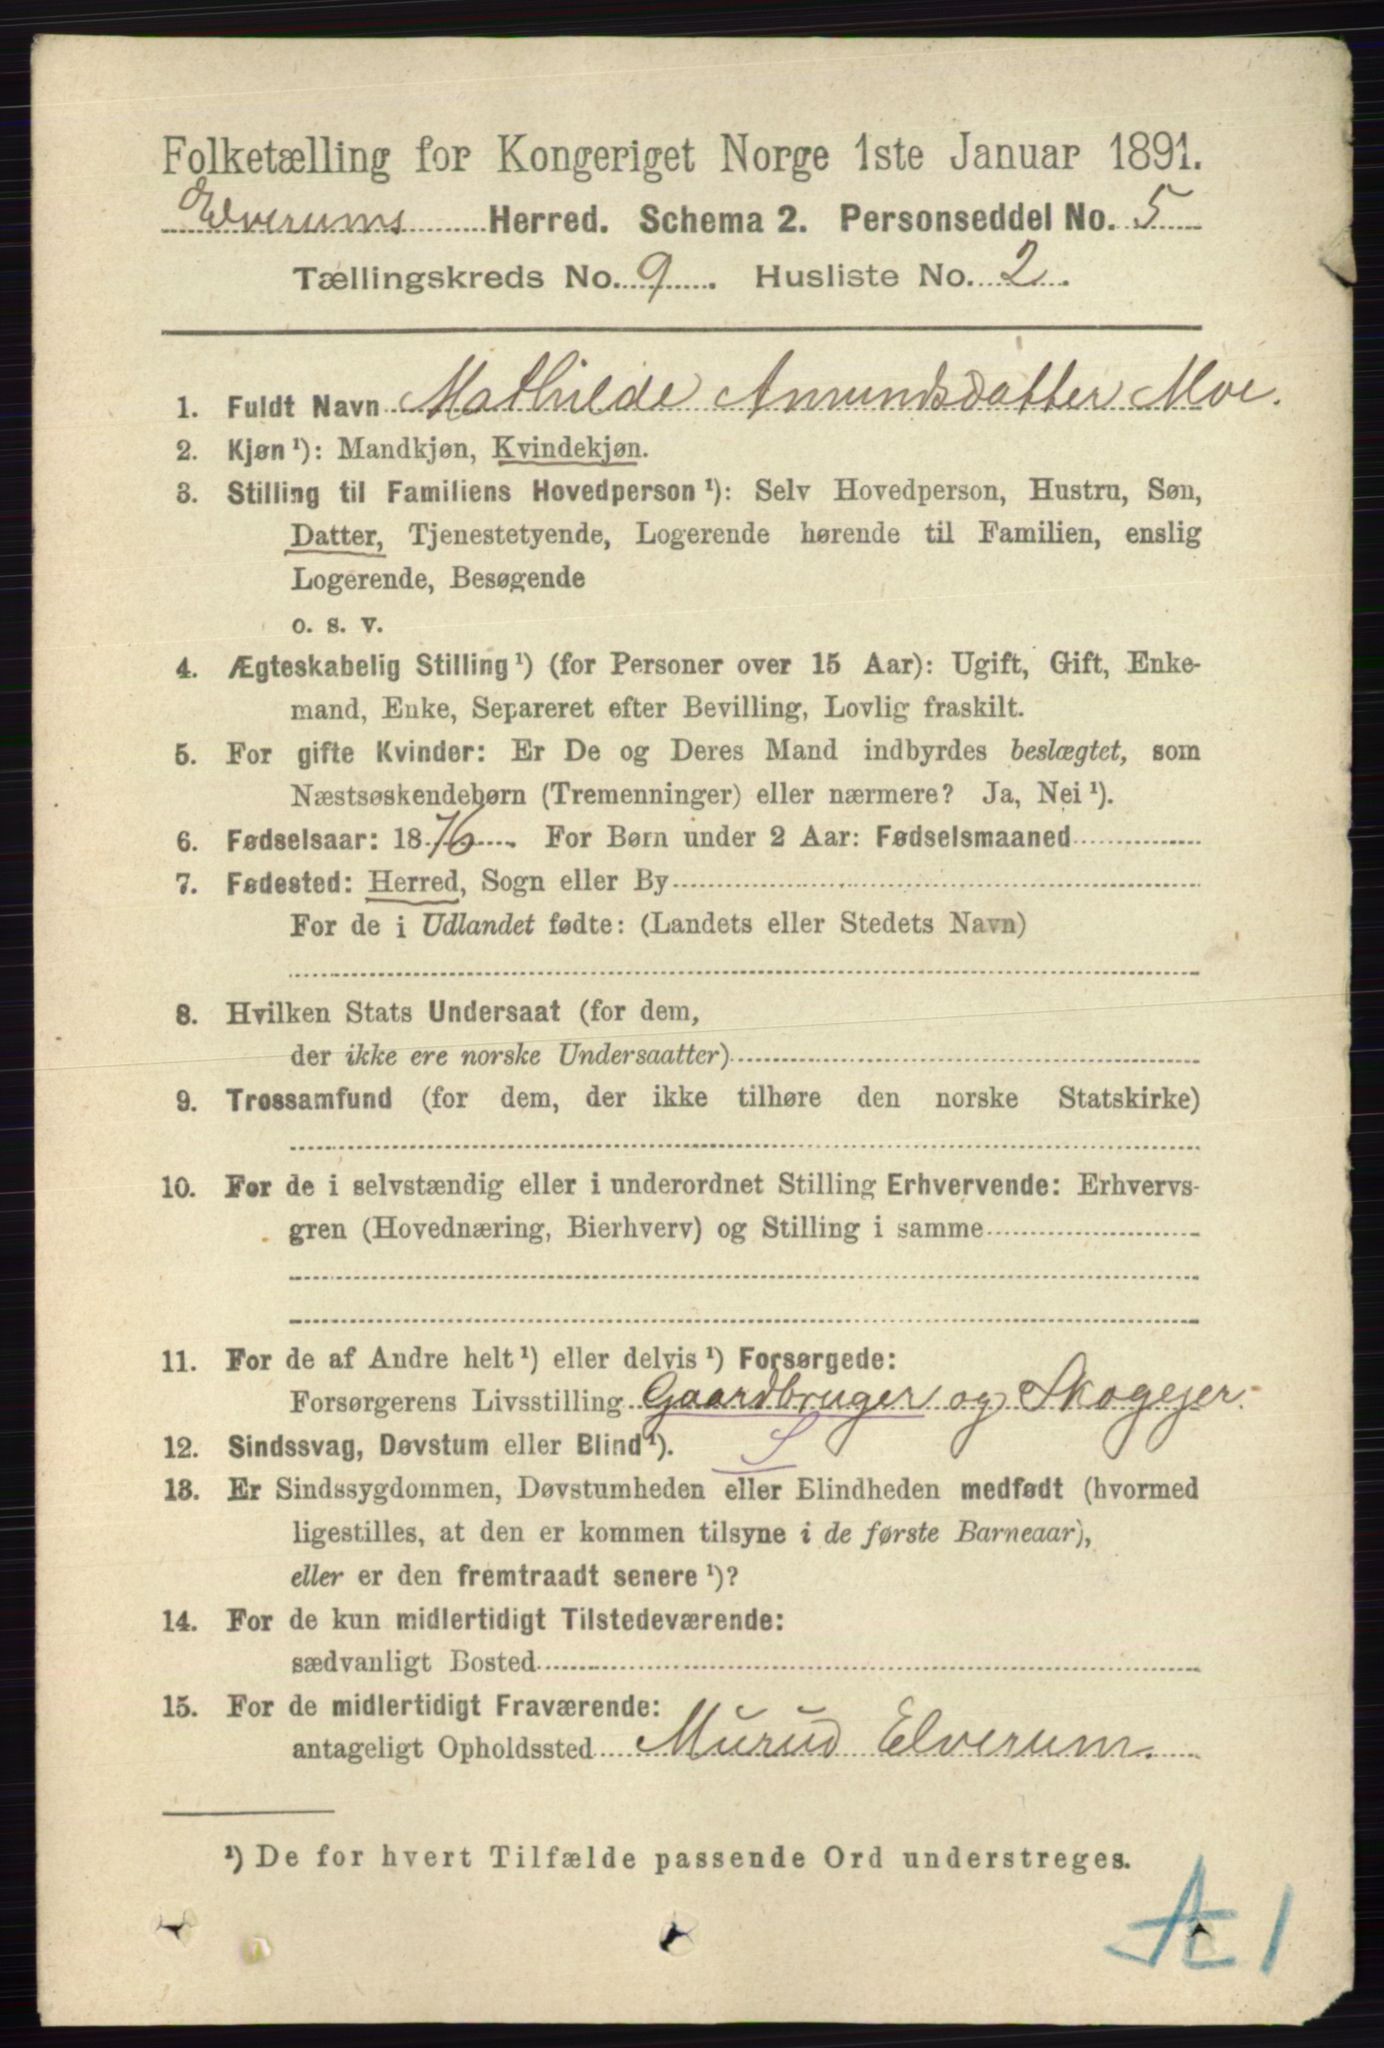 Folketælling for Kongeriget Norge 1ste Januar 1891.
Elverums Herred. Schema 2. Personseddel No. 5
Tællingskreds No. 9. Husliste No. 2.
1. Fuldt Navn Mathilde Amundsdatter Moe.
2. Kjøn ¹): Mandkjøn, Kvindekjøn.
3. Stilling til Familiens Hovedperson ¹): Selv Hovedperson, Hustru, Søn,
Datter, Tjenestetyende, Logerende hørende til Familien, enslig
Logerende, Besøgende
o. s. v.
4. Ægteskabelig Stilling ¹) (for Personer over 15 Aar): Ugift, Gift, Enke-
mand, Enke, Separeret efter Bevilling, Lovlig fraskilt.
5. For gifte Kvinder: Er De og Deres Mand indbyrdes beslægtet, som
Næstsøskendebørn (Tremenninger) eller nærmere? Ja, Nei ¹).
6. Fødselsaar: 1876. For Børn under 2 Aar: Fødselsmaaned
7. Fødested: Herred, Sogn eller By
For de i Udlandet fødte: (Landets eller Stedets Navn)
8. Hvilken Stats Undersaat (for dem,
der ikke ere norske Undersaatter)
9. Trossamfund (for dem, der ikke tilhøre den norske Statskirke)
10. For de i selvstændig eller i underordnet Stilling Erhvervende: Erhvervs-
gren (Hovednæring, Bierhverv) og Stilling i samme
11. For de af Andre helt ¹) eller delvis ¹) Forsørgede:
Forsørgerens Livsstilling Gaardbruger og Skogejer.
12. Sindssvag, Døvstum eller Blind ¹). S
13. Er Sindssygdommen, Døvstumheden eller Blindheden medfødt (hvormed
ligestilles, at den er kommen tilsyne i de første Barneaar),
eller er den fremtraadt senere ¹)?
14. For de kun midlertidigt Tilstedeværende:
sædvanligt Bosted
15. For de midlertidigt Fraværende:
antageligt Opholdssted Murud Elverum.
¹) De for hvert Tilfælde passende Ord understreges.